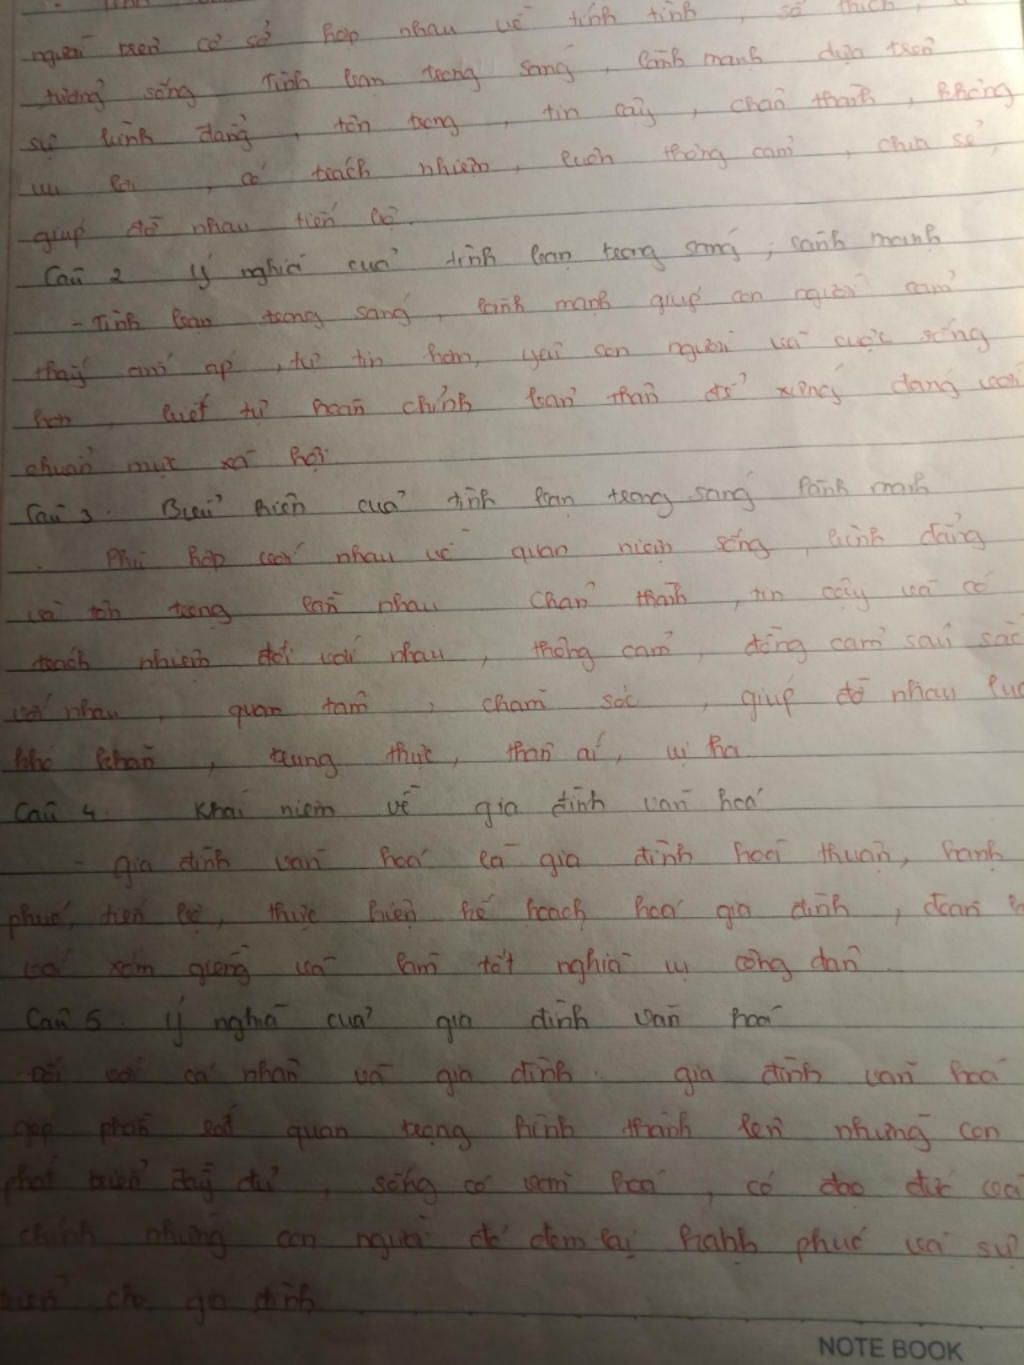 người trên cơ sở hợp nhau về tính tình, sở thích,
tưởng sống. Tình bạn trong sáng, lành mạnh dựa trên
sự bình đẳng, tôn trọng, tin cậy, chân thành, không
vụ lợi, có trách nhiệm, luôn thông cảm, chia sẻ,
giúp đỡ nhau tiến bộ.
Câu 2 Ý nghĩa của tình bạn trong sáng, lành mạnh
- Tình bạn trong sáng, lành mạnh giúp con người cảm
thấy ấm áp, tự tin hơn, yêu con người và cuộc sống
hơn, biết tự hoàn chỉnh bản thân để xứng đáng với
chuẩn mực xã hội.
Câu 3. Biểu hiện của tình bạn trong sáng lành mạnh
. Phù hợp với nhau về quan niệm sống, bình đẳng
và tôn trọng lẫn nhau chân thành, tin cậy và có
trách nhiệm đối với nhau, thông cảm, đồng cảm sâu sắc
với nhau, quan tâm, chăm sóc, giúp đỡ nhau lúc
khó khăn, trung thực, thân ái, vị tha
Câu 4. Khái niệm về gia đình văn hoá
- gia đình văn hoá là gia đình hoà thuận, hạnh
phúc, tiến bộ, thực hiện kế hoạch hoá gia đình, đoàn
với xóm giềng và làm tốt nghĩa vụ công dân.
Câu 5. Ý nghĩa của gia đình văn hoá
- Đối với cá nhân và gia đình. gia đình văn hoá
góp phần rất quan trọng hình thành lên những con
phát triển đầy đủ, sống có văn hoá, có đạo đức và
chính những con người đó đem lại hạnh phúc và sự
cho gia đình
NOTE BOOK